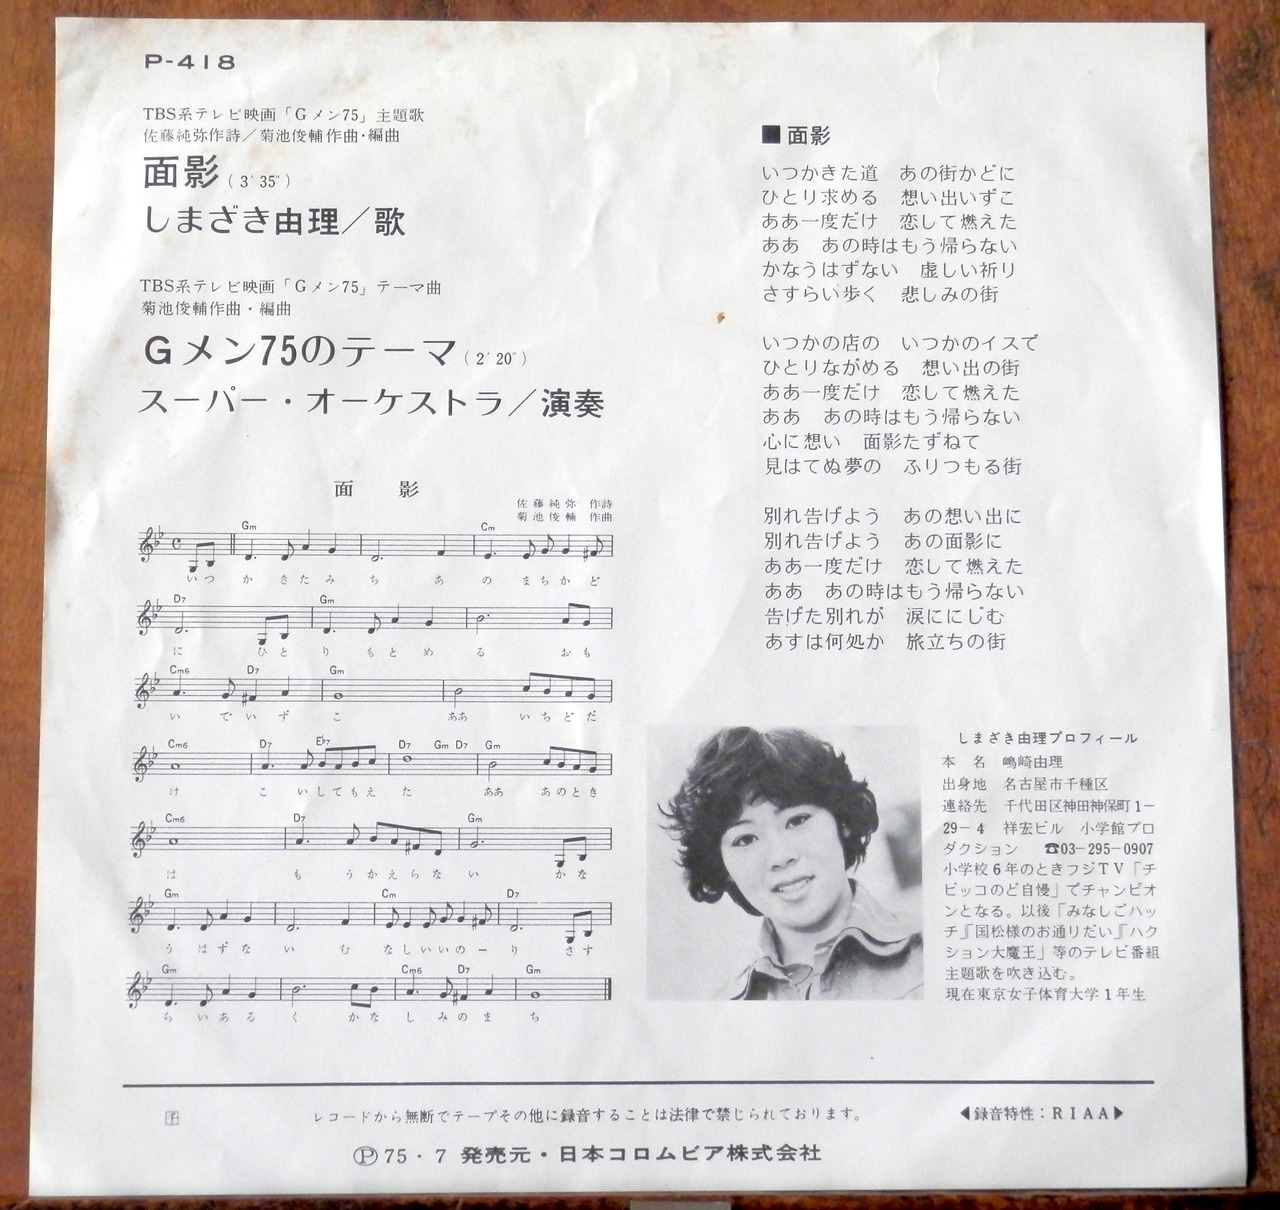 P-418
TBS系テレビ映画「Gメン75」主題歌
佐藤純弥作詩／菊池俊輔作曲・編曲
面影(3′35″)
しまざき由理／歌
TBS系テレビ映画「Gメン75」テーマ曲
菊池俊輔作曲・編曲
Gメン75のテーマ(2′20″)
スーパー・オーケストラ／演奏
面 影
佐藤純弥 作詩
菊池俊輔 作曲
Gm Cm
いつ か きたみ ち あ の まちかど
D7 Gm
に ひと り もとめ る おも
Cm6 D7 Gm
い でいず こ ああ いちどだ
Cm6 D7 E♭7 D7 Gm D7 Gm
け こ いしてもえ た ああ あのとき
Cm6 D7 Gm
は も うかえらな い かな
Gm Cm D7
う はずな い む なしいいのーり さす
Gm Cm6 D7 Gm
ら いある く かな し みのま ち
■面影
いつかきた道 あの街かどに
ひとり求める 想い出いずこ
ああ一度だけ 恋して燃えた
ああ あの時はもう帰らない
かなうはずない 虚しい祈り
さすらい歩く 悲しみの街
いつかの店の いつかのイスで
ひとりながめる 想い出の街
ああ一度だけ 恋して燃えた
ああ あの時はもう帰らない
心に想い 面影たずねて
見はてぬ夢の ふりつもる街
別れ告げよう あの想い出に
別れ告げよう あの面影に
ああ一度だけ 恋して燃えた
ああ あの時はもう帰らない
告げた別れが 涙ににじむ
あすは何処か 旅立ちの街
しまざき由理プロフィール
本 名 嶋崎由理
出身地 名古屋市千種区
連絡先 千代田区神田神保町1－
29－4 祥宏ビル 小学館プロ
ダクション ☎03－295－0907
小学校6年のときフジTV「チ
ビッコのど自慢」でチャンピオ
ンとなる。以後「みなしごハッ
チ』『国松様のお通りだい』『ハク
ション大魔王」等のテレビ番組
主題歌を吹き込む。
現在東京女子体育大学1年生
レコードから無断でテープその他に録音することは法律で禁じられております。
◀録音特性：RIAA▶
Ⓟ75・7 発売元・日本コロムビア株式会社